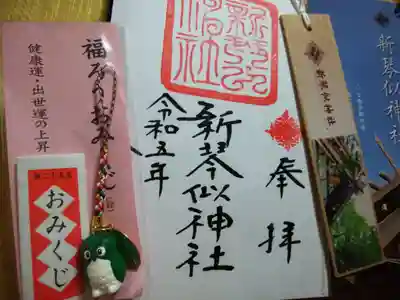 福ふくろうおみくじ
健康運・出世運の上昇
おみくじ
奉拝
新琴似神社
令和五年
新琴似神社
新琴似神社